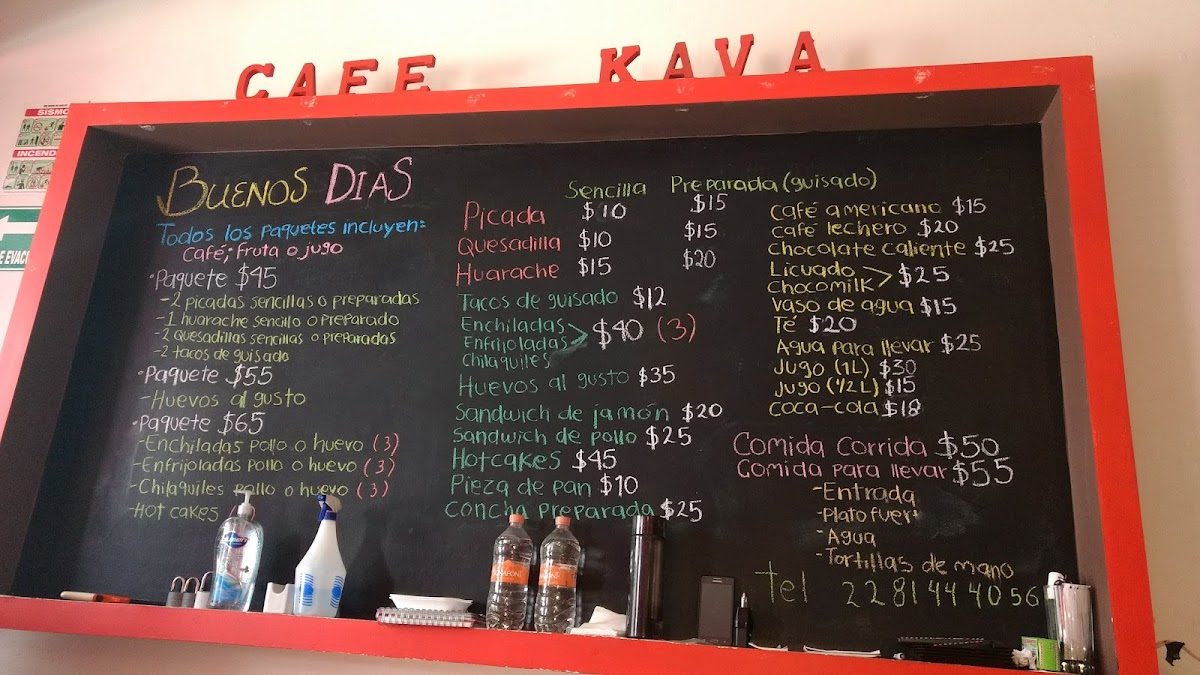 CAFE KAVA
SISMO
INCENDI
E EVAC
BUENOS DIAS
Todos los paquetes incluyen:
Café, Fruta o jugo
•Paquete $45
-2 picadas sencillas o preparadas
-1 huarache sencillo o preparado
-2 quesadillas sencillas o preparadas
-2 tacos de guisado
•Paquete $55
-Huevos al gusto
•Paquete $65
-Enchiladas pollo o huevo (3)
-Enfrijoladas pollo o huevo (3)
-Chilaquiles pollo o huevo (3)
-Hot cakes
Sencilla Preparada (guisado)
Picada $10 $15
Quesadilla $10 $15
Huarache $15 $20
Tacos de guisado $12
Enchiladas
Enfrijoladas > $40 (3)
Chilaquiles
Huevos al gusto $35
Sandwich de jamón $20
Sandwich de pollo $25
Hotcakes $45
Pieza de pan $10
Concha preparada $25
Café americano $15
Café lechero $20
Chocolate caliente $25
Licuado > $25
Chocomilk
Vaso de agua $15
Té $20
Agua para llevar $25
Jugo (1L) $30
Jugo (1/2 L) $15
Coca-cola $18
Comida corrida $50
Comida para llevar $55
-Entrada
-Plato fuert
-Agua
-Tortillas de mano
tel 2281444056